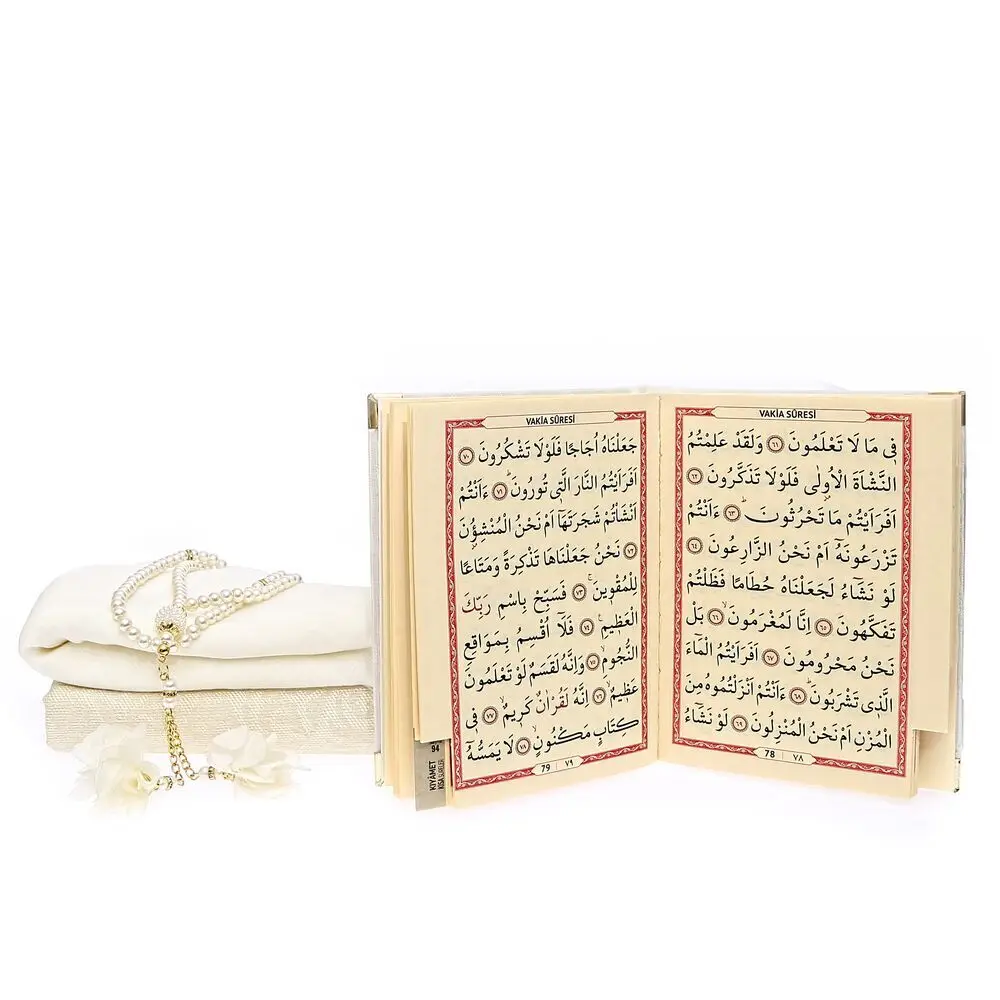 VAKİA SÛRESİ
فٖى مَا لَا تَعْلَمُونَ ﴿٦١﴾ وَلَقَدْ عَلِمْتُمُ
النَّشْاَةَ الْاُو۫لٰى فَلَوْلَا تَذَكَّرُونَ ﴿٦٢﴾
اَفَرَاَيْتُمْ مَا تَحْرُثُونَ ﴿٦٣﴾ ءَاَنْتُمْ
تَزْرَعُونَهُٓ اَمْ نَحْنُ الزَّارِعُونَ ﴿٦٤﴾
لَوْ نَشَٓاءُ لَجَعَلْنَاهُ حُطَامًا فَظَلْتُمْ
تَفَكَّهُونَ ﴿٦٥﴾ اِنَّا لَمُغْرَمُونَ ﴿٦٦﴾ بَلْ
نَحْنُ مَحْرُومُونَ ﴿٦٧﴾ اَفَرَاَيْتُمُ الْمَٓاءَ
الَّذٖى تَشْرَبُونَ ﴿٦٨﴾ ءَاَنْتُمْ اَنْزَلْتُمُوهُ مِنَ
الْمُزْنِ اَمْ نَحْنُ الْمُنْزِلُونَ ﴿٦٩﴾ لَوْ نَشَٓاءُ
78 | ٧٨
VAKİA SÛRESİ
جَعَلْنَاهُ اُجَاجًا فَلَوْلَا تَشْكُرُونَ ﴿٧٠﴾
اَفَرَاَيْتُمُ النَّارَ الَّتٖى تُورُونَ ﴿٧١﴾ ءَاَنْتُمْ
اَنْشَاْتُمْ شَجَرَتَهَٓا اَمْ نَحْنُ الْمُنْشِؤُ۫نَ
﴿٧٢﴾ نَحْنُ جَعَلْنَاهَا تَذْكِرَةً وَمَتَاعًا
لِلْمُقْوٖينَ ﴿٧٣﴾ فَسَبِّحْ بِاسْمِ رَبِّكَ
الْعَظٖيمِ ﴿٧٤﴾ فَلَٓا اُقْسِمُ بِمَوَاقِعِ
النُّجُومِ ﴿٧٥﴾ وَاِنَّهُ لَقَسَمٌ لَوْ تَعْلَمُونَ
عَظٖيمٌ ﴿٧٦﴾ اِنَّهُ لَقُرْاٰنٌ كَرٖيمٌ ﴿٧٧﴾ فٖى
كِتَابٍ مَكْنُونٍ ﴿٧٨﴾ لَا يَمَسُّهُٓ
79 | ٧٩
94
KIYÂMET
KISA SÛRELER